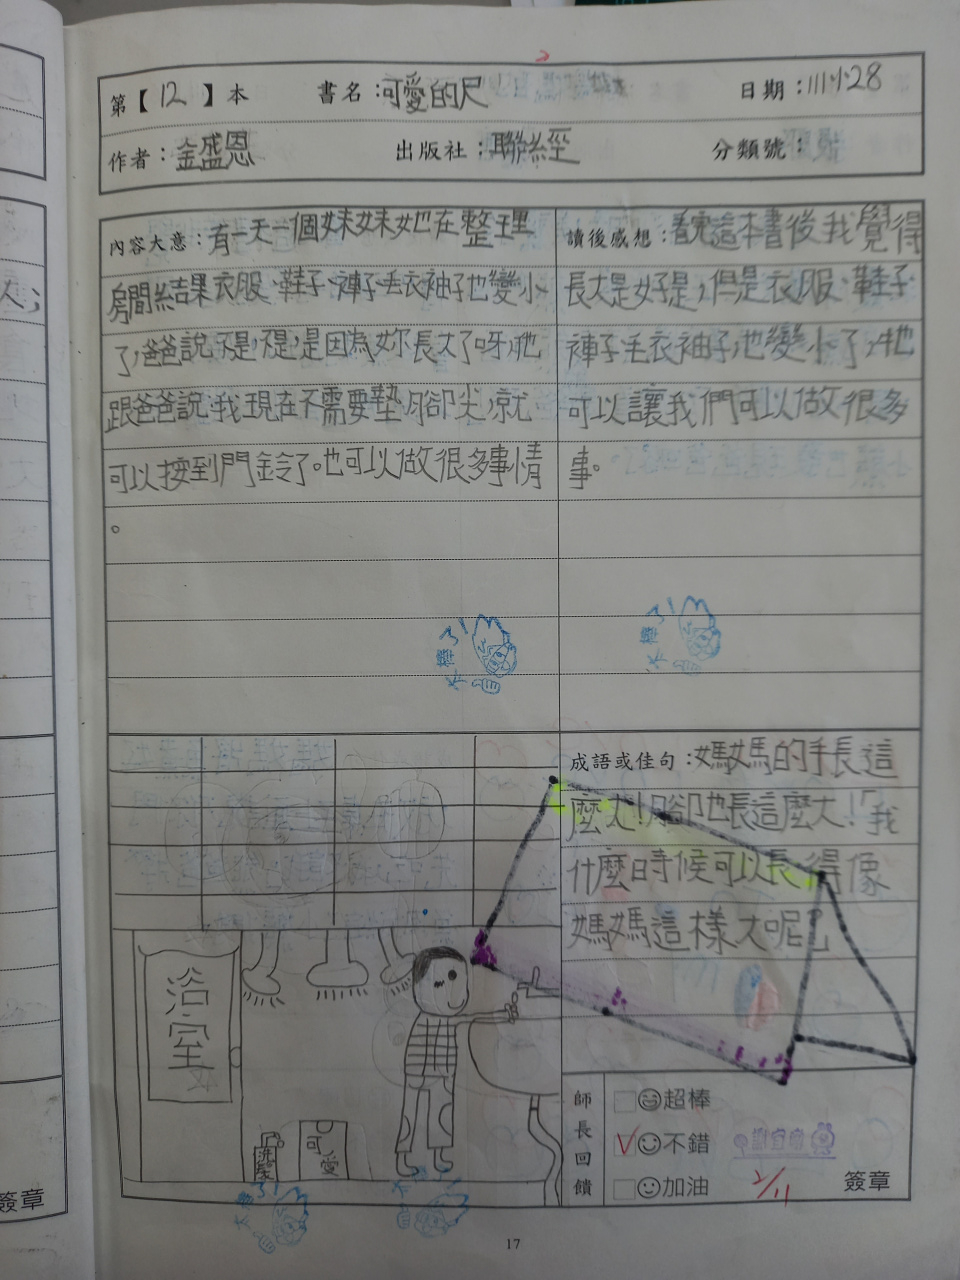 第【12】本 書名：可愛的尺 日期：111.1.28
作者：金盛恩 出版社：聯經 分類號：
內容大意：有一天一個妹妹她在整理
房間結果衣服、鞋子、褲子、毛衣袖子也變小
了，爸爸說不是，不是，是因為妳長大了呀，她
跟爸爸說我現在不需要墊腳尖，就
可以按到門鈴了。也可以做很多事情
。
讀後感想：看完這本書後我覺得
長大是好是，但是衣服、鞋子、
褲子、毛衣袖子，也變小了，他
可以讓我們可以做很多
事。
太棒了！
太棒了！
成語或佳句：媽媽的手長這
麼大！腳也長這麼大！「我
什麼時候可以長得像
媽媽這樣大呢」
浴室
女
可愛
太棒了！
師長回饋
超棒
不錯
加油
2/11
簽章
17
人；
簽章